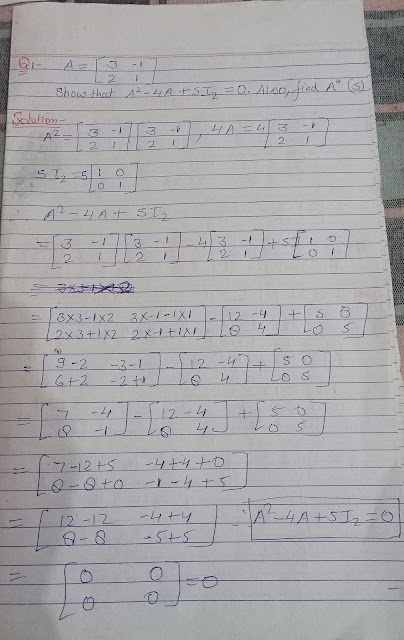 Q1- A = [3 -1
2 1]
Show that A²-4A+5I₂=0. Also, find Aⁿ (5)
Solution-
A²=[3 -1
2 1][3 -1
2 1], 4A=4[3 -1
2 1]
5I₂=5[1 0
0 1]
∴ A²-4A+5I₂
=[3 -1
2 1][3 -1
2 1]-4[3 -1
2 1]+5[1 0
0 1]
=[3×3-1×2 3×-1-1×1
2×3+1×2 2×-1+1×1]-[12 -4
8 4]+[5 0
0 5]
=[9-2 -3-1
6+2 -2+1]-[12 -4
8 4]+[5 0
0 5]
=[7 -4
8 -1]-[12 -4
8 4]+[5 0
0 5]
=[7-12+5 -4+4+0
8-8+0 -1-4+5]
=[12-12 -4+4
8-8 -5+5] ∴ A²-4A+5I₂=0
=[0 0
0 0]=0